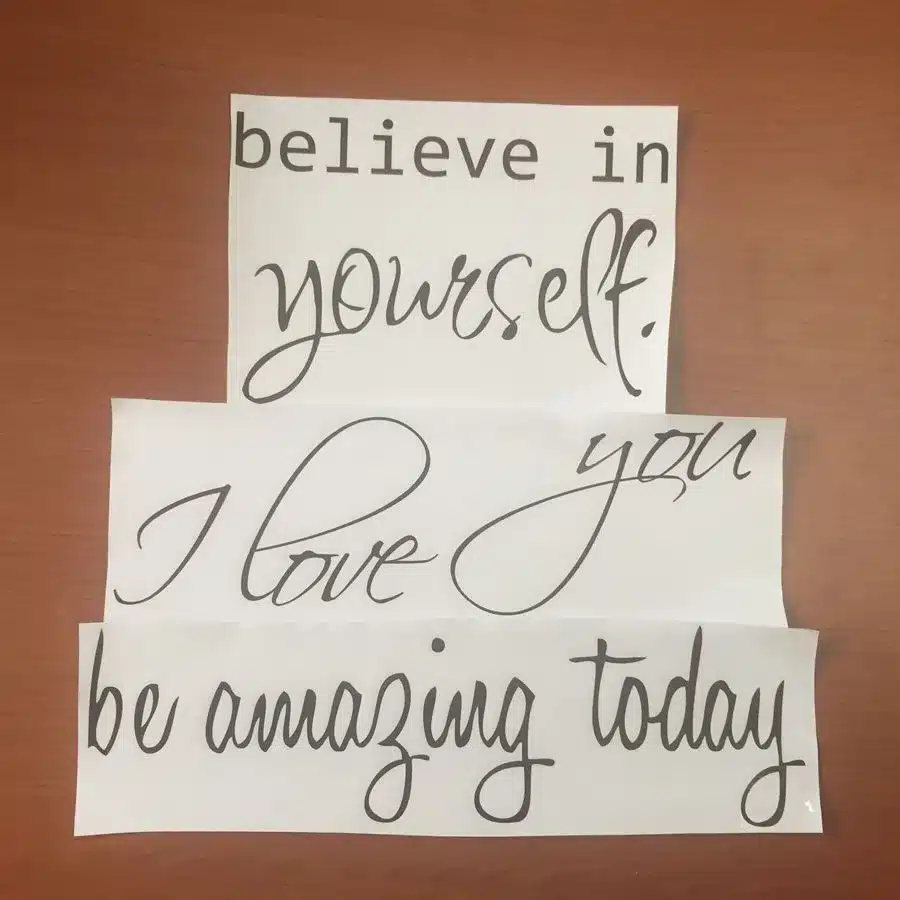 believe in
yourself.
I love you
be amazing today